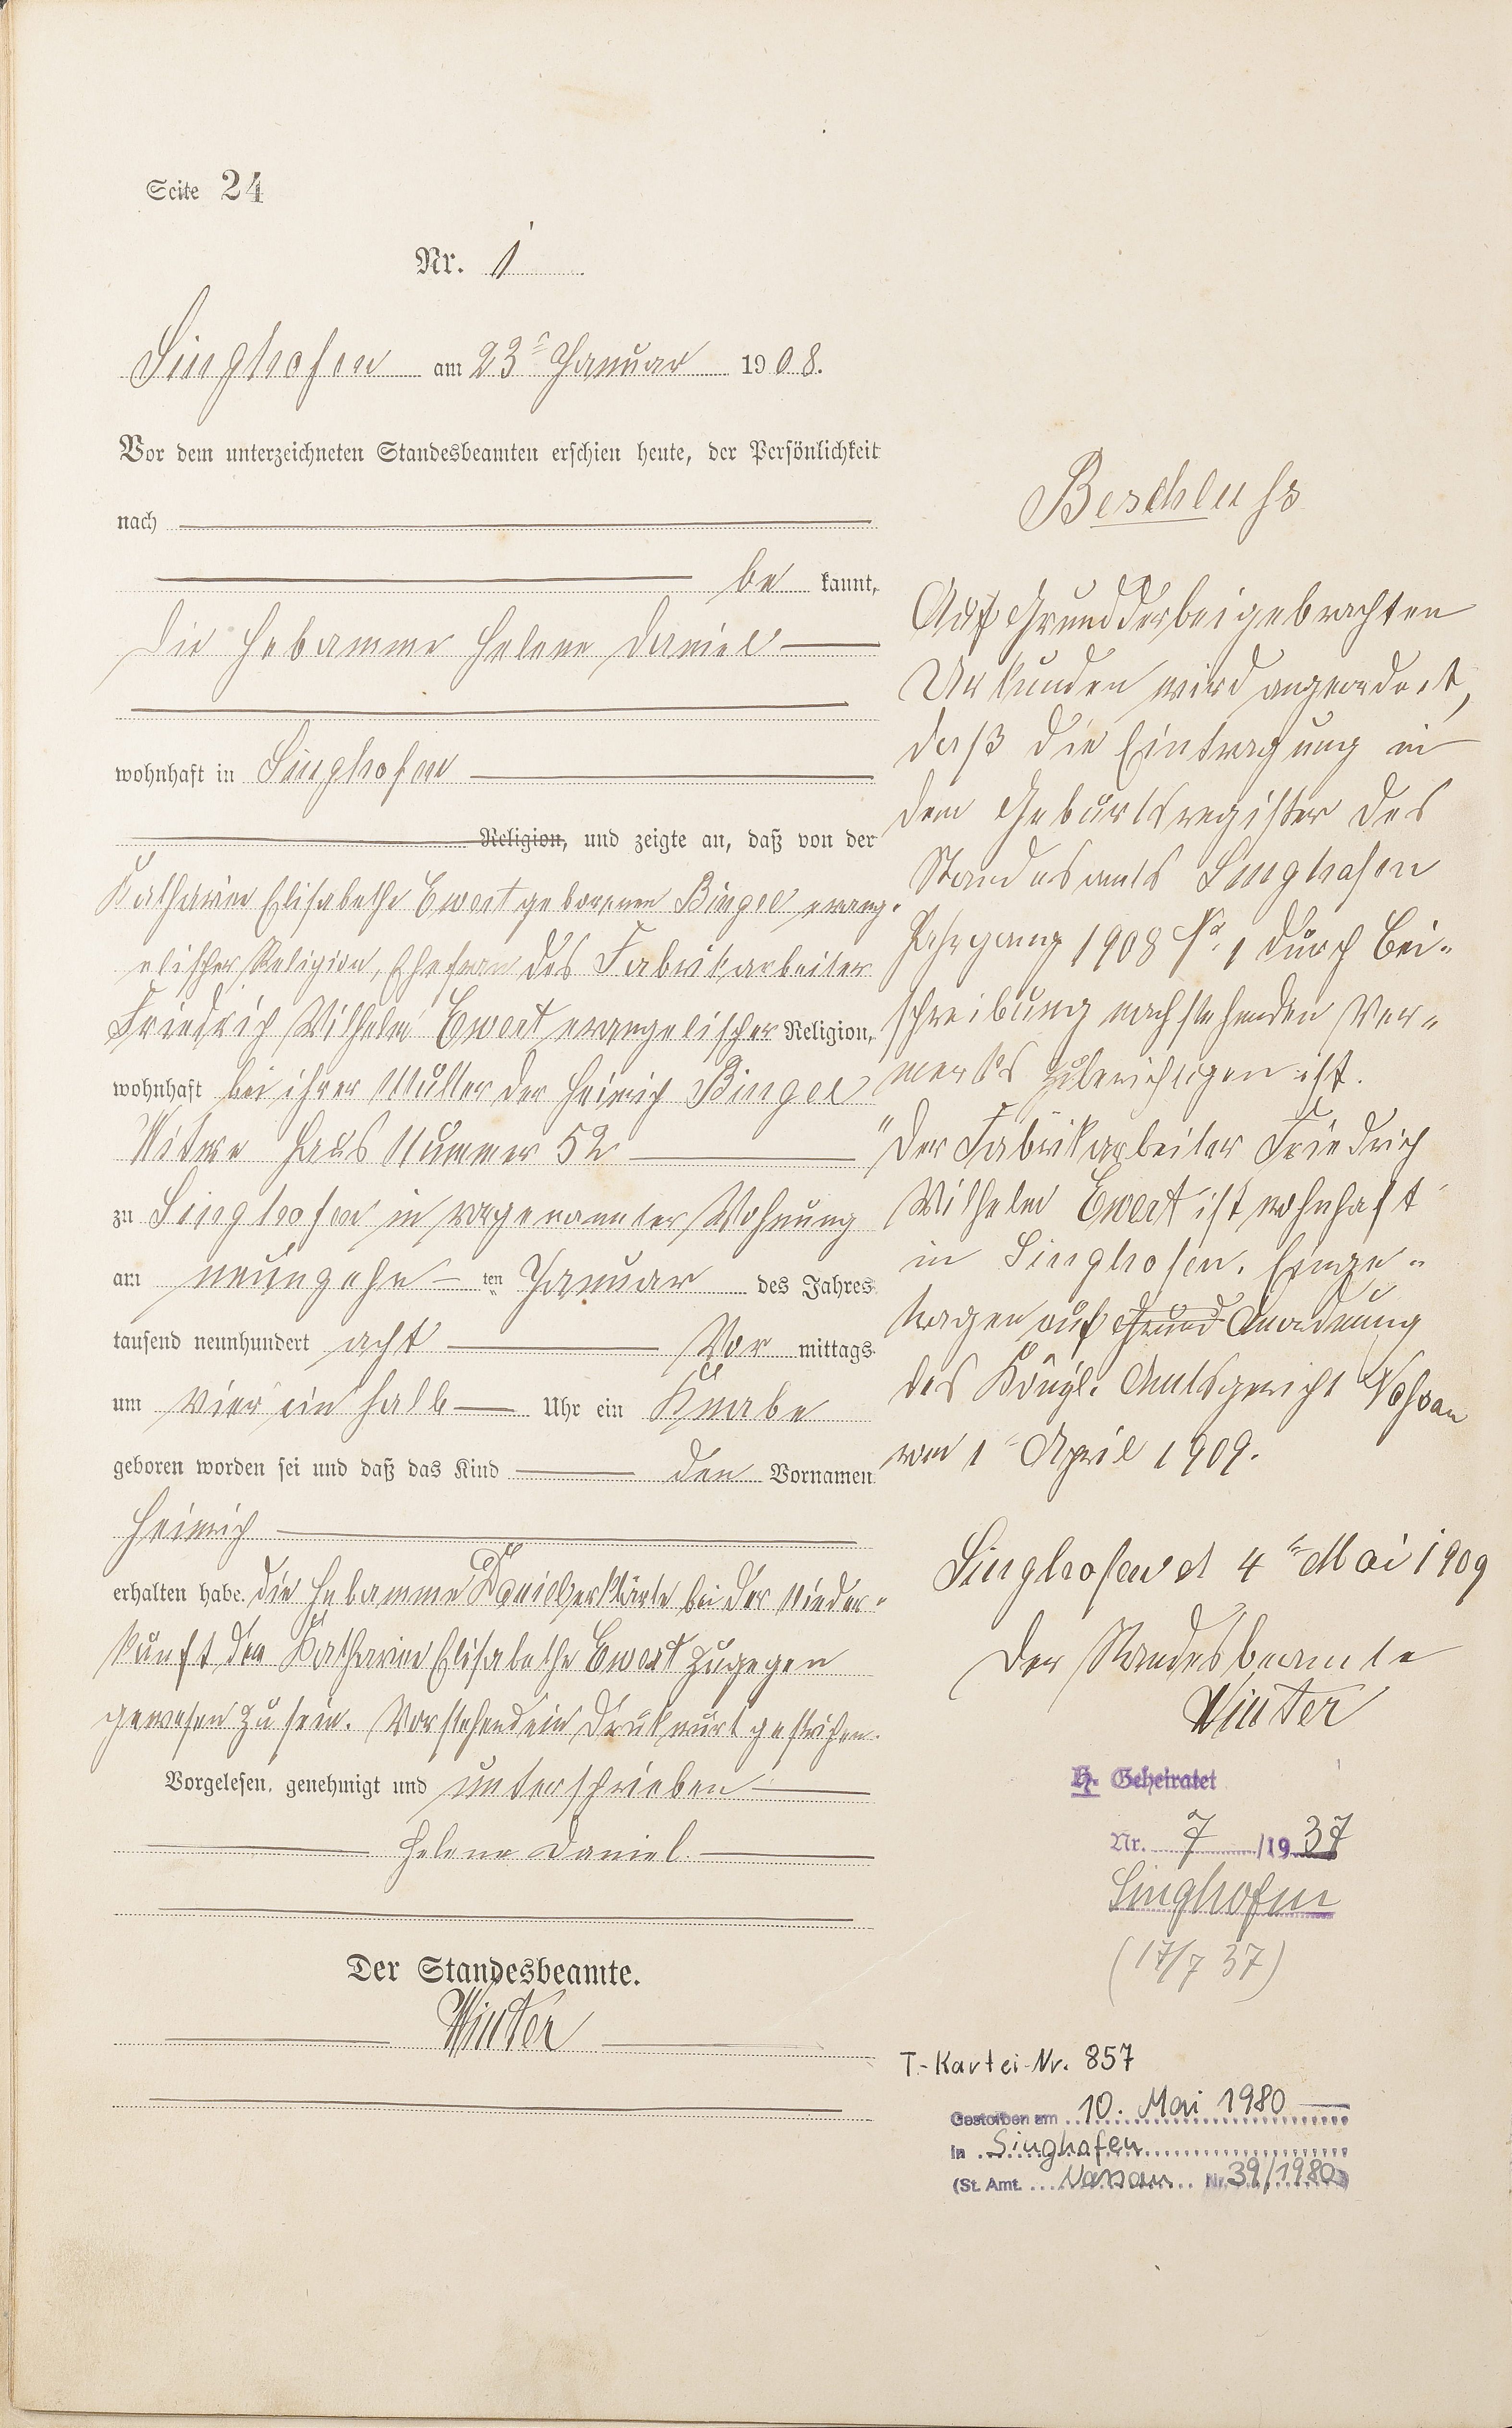 Seite 24
Nr. 1
Singhofen am 23ᵗ Januar 1908.
Vor dem unterzeichneten Standesbeamten erschien heute, der Persönlichkeit
nach
be kannt,
die Hebamme Helene Daniel
wohnhaft in Singhofen
Religion, und zeigte an, daß von der
Katharine Elisabethe Ewert geborenen Bingel evang-
elischer Religion, Ehefrau des Fabrikarbeiter
Friedrich Wilhelm Ewert evangelischer Religion,
wohnhaft bei ihrer Mutter der Heinrich Bingel
Witwe Haus Nummer 52
zu Singhofen in vorgenannter Wohnung
am neunzehn ten Januar des Jahres
tausend neunhundert acht Vor mittags
um vier ein halb Uhr ein Knabe
geboren worden sei und daß das Kind den Vornamen
Heinrich
erhalten habe. Die Hebamme Daniel erklärte bei der Nieder-
kunft der Katharine Elisabethe Ewert zugegen
gewesen zu sein. Vorstehend ein Druckwort gestrichen.
Vorgelesen, genehmigt und unterschrieben
Helene Daniel.
Der Standesbeamte.
Winter
Beschluss
Auf Grund der beigebrachten
Urkunden wird angeordnet,
daß die Eintragung in
dem Geburtsregister des
Standesamts Singhofen
Jahrgang 1908 No. 1 durch Bei-
schreibung nachstehenden Ver-
merks zu berichtigen ist.
"Der Fabrikarbeiter Friedrich
Wilhelm Ewert ist wohnhaft
in Singhofen. Einge-
tragen auf Grund Anordnung
des Königl. Amtsgericht Nassau
vom 1ᵗ April 1909.
Singhofen d 4ᵗ Mai 1909
Der Standesbeamte
Winter
H. Geheiratet
Nr. 7 /19 37
Singhofen
(17/7 37)
T.-Kartei-Nr. 857
Gestorben am 10. Mai 1980
in Singhofen
(St. Amt. Nassau Nr. 39/1980)